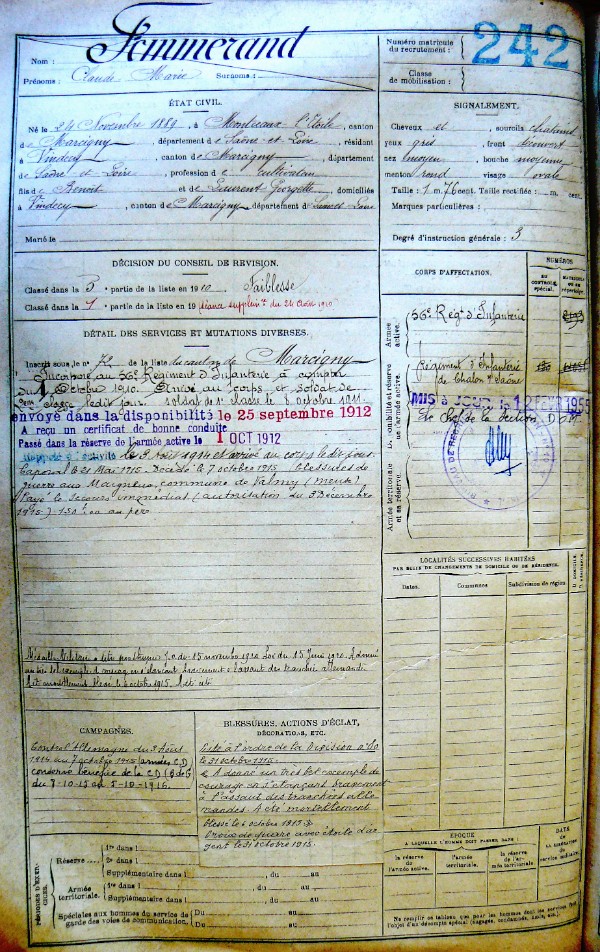 Nom : Femmerand
Prénoms : Claude Marie Surnoms :
Numéro matricule du recrutement : 242
Classe de mobilisation :
ÉTAT CIVIL.
Né le 24 Novembre 1889, à Montceaux l'Etoile, canton
de Marcigny, département de Saône et Loire, résidant
à Vindecy, canton de Marcigny, département
de Saône et Loire, profession de cultivateur
fils de Benoit et de Laurent Georgette, domiciliés
à Vindecy, canton de Marcigny, département de Saône et Loire
Marié le
SIGNALEMENT.
Cheveux et sourcils chatain
yeux gris, front découvert
nez moyen, bouche moyenne
menton rond visage ovale
Taille : 1 m. 76 cent. Taille rectifiée : m. cent.
Marques particulières :
Degré d'instruction générale : 3
DÉCISION DU CONSEIL DE REVISION.
Classé dans la 5 partie de la liste en 1910 Faiblesse
Classé dans la 1 partie de la liste en 19 séance supplém.re du 24 Août 1910
DÉTAIL DES SERVICES ET MUTATIONS DIVERSES.
Inscrit sous le n° 72 de la liste du canton de Marcigny
Incorporé au 56e Régiment d'Infanterie à compter
du Octobre 1910. Arrivé au corps et soldat de
2eme classe ledit jour soldat de 1e classe le 8 octobre 1911.
envoyé dans la disponibilité le 25 septembre 1912
A reçu un certificat de bonne conduite
Passé dans la réserve de l'armée active le 1 OCT 1912
Rappelé à l'activité le 3 Août 1914 et arrivé au corps ledit jour
Caporal le 21 Mai 1915. Décédé le 7 octobre 1915 (blessures de
guerre aux Maigneux, commune de Valmy (meuse)
Payé le secours immédiat (autorisation du 3 Décembre
1915) 150 au père
Médaille Militaire à titre posthume J.O. du 15 novembre 1920
à l'assaut des tranchées allemandes
le 6 octobre 1915.
CORPS D'AFFECTATION.
NUMÉROS
AU CONTROLE spécial.
MATRICULE OU AU répertoire.
Armée active.
56e Régt d'Infanterie
Disponibilité et réserve de l'armée active.
Régiment d'Infanterie
de Chalon s/ Saône
MIS A JOUR le 12 FEVR 1955
Le Chef de la Section
Armée territoriale et sa réserve.
LOCALITÉS SUCCESSIVES HABITÉES
PAR SUITE DE CHANGEMENTS DE DOMICILE OU DE RÉSIDENCE.
Dates.
Communes
Subdivision de région
CAMPAGNES.
Contre l'Allemagne du 3 Août
1914 au 7 octobre 1915 (armées) CD
conserve bénéfice de la CD
du 7-10-15 au 5-10-1916.
BLESSURES, ACTIONS D'ÉCLAT,
DÉCORATIONS, ETC.
Cité à l'ordre de la Division
le 31 octobre 1915.
« A donné un très bel exemple de
courage en s'élançant bravement
à l'assaut des tranchées alle
mandes. A été mortellement
blessé le 6 octobre 1915 »
Croix de guerre avec étoile d'ar
gent le 31 octobre 1915.
PÉRIODES D'EXERCICES.
Réserve
1re dans l
2e dans l
Supplémentaire dans l , du au
Armée territoriale.
1re dans l
Supplémentaire dans l , du au
Spéciales aux hommes du service de
garde des voies de communication.
Du au
Du au
ÉPOQUE
A LAQUELLE L'HOMME DOIT PASSER DANS :
la réserve de l'armée active.
l'armée territoriale.
la réserve de l'armée territoriale.
DATE DE LA LIBÉRATION du service militaire.
Ne remplir ce tableau que pour les hommes dont les services font
l'objet d'un décompte spécial (engagés, condamnés, omis, etc.)